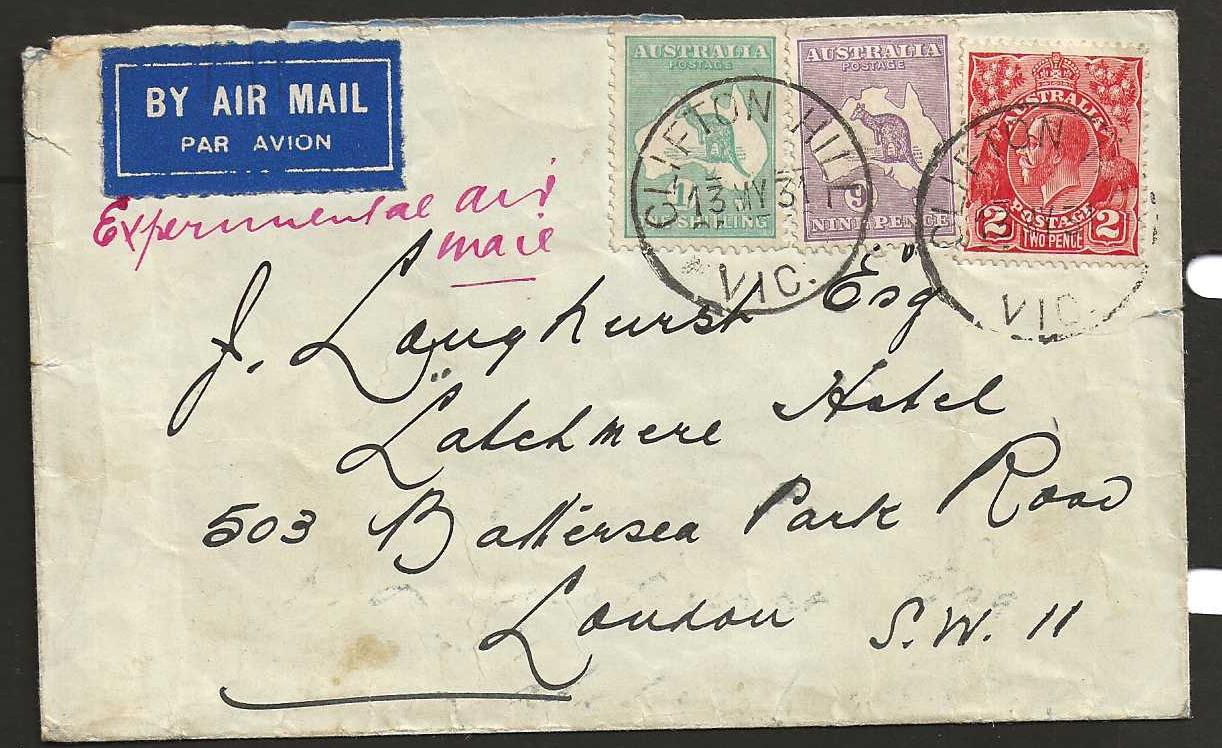 BY AIR MAIL
PAR AVION
Experimental air
mail
AUSTRALIA
POSTAGE
1
SHILLING
AUSTRALIA
POSTAGE
9
NINE PENCE
AUSTRALIA
POSTAGE
2 TWO PENCE 2
CLIFTON HILL
13 MY 31
VIC.
CLIFTON
VIC.
J. Longhurst Esq
Latchmere Hotel
503 Battersea Park Road
London S.W. 11